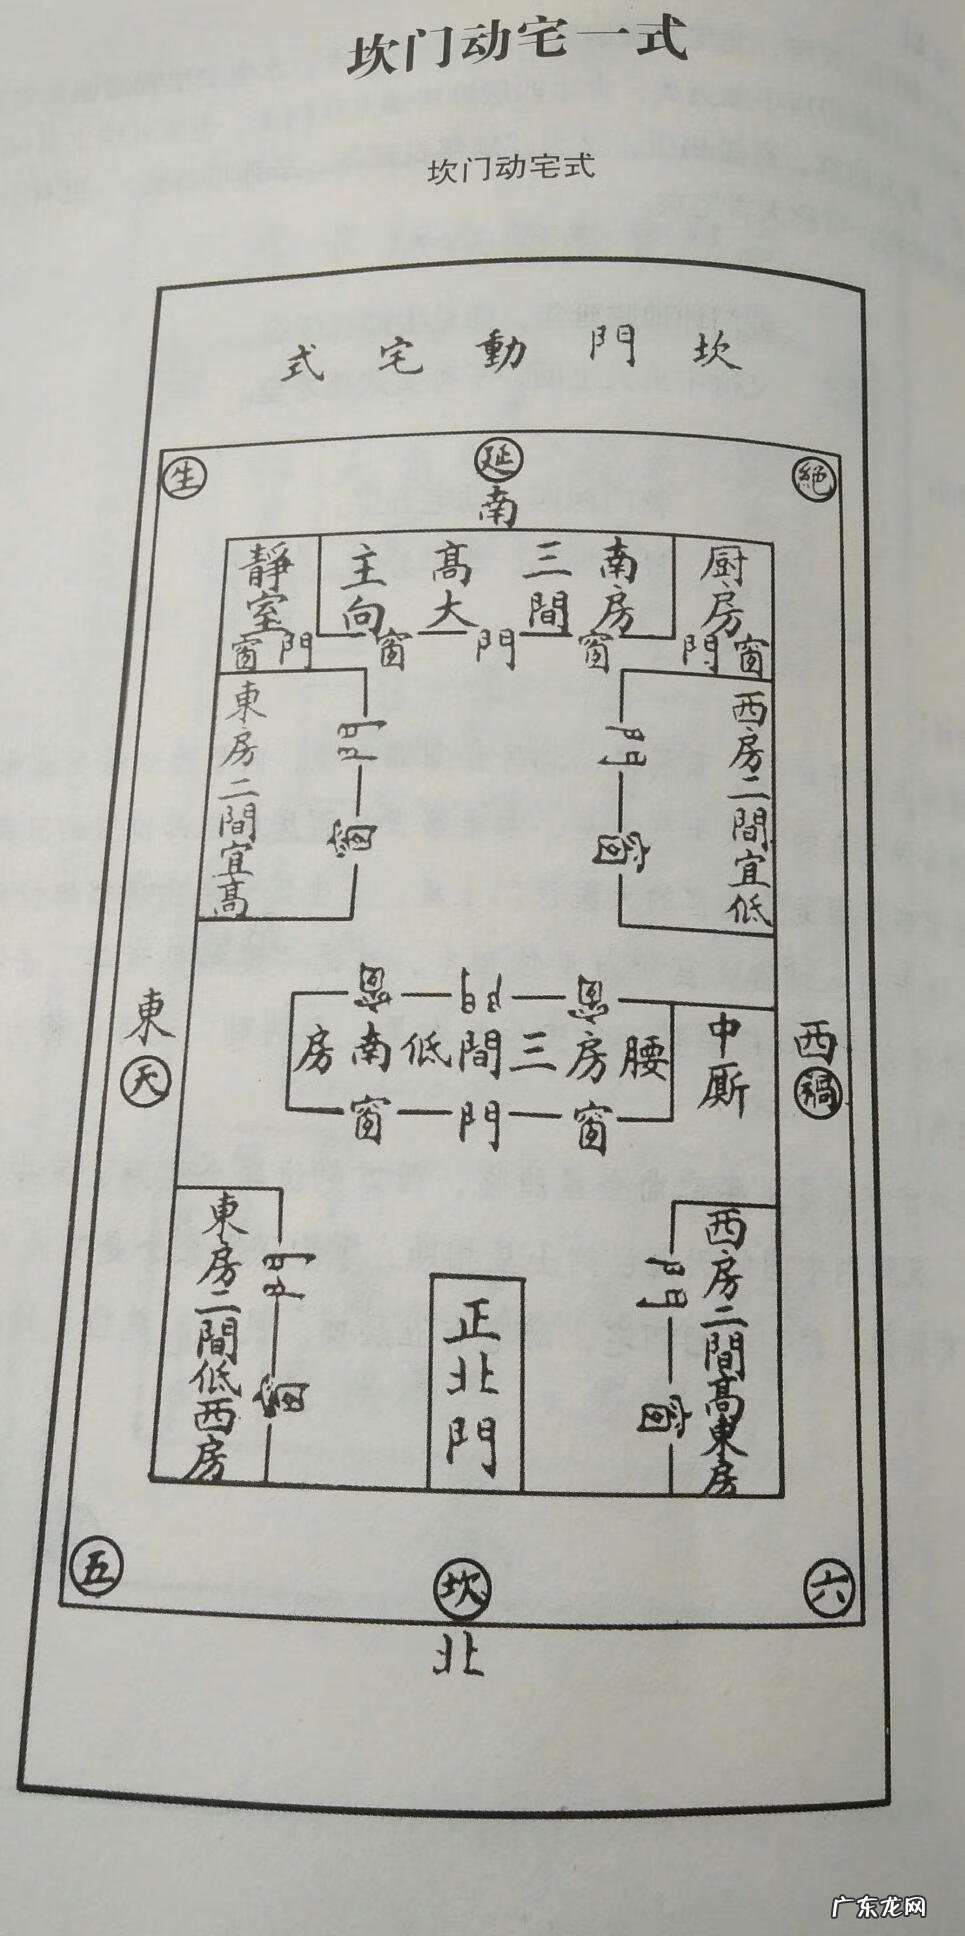 坎门动宅一式
坎门动宅式
坎門動宅式
生
延
絶
南
靜室
主向
高大
三間
南房
厨房
窗門
窗
門
窗
門窗
東房二間宜高
門
窗
西房二間宜低
門
窗
東
天
窗
門
窗
腰房三間低南房
窗
門
窗
中厮
西
禍
東房二間低西房
門
窗
正北門
西房二間高東房
門
窗
五
坎
六
北
广东龙网